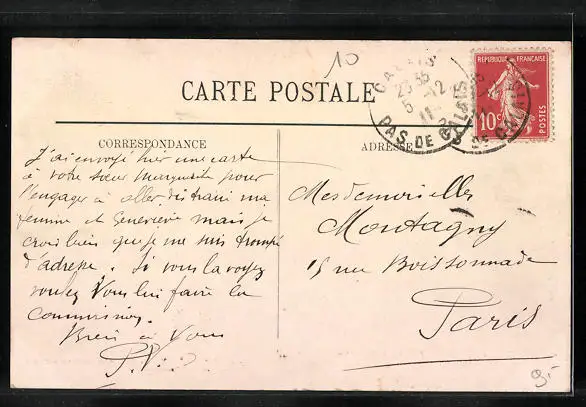 10
CARTE POSTALE
CORRESPONDANCE
ADRESSE
CALAIS
23 35
5 -12
11
PAS DE CALAIS
REPUBLIQUE FRANÇAISE
10c
POSTES
J'ai envoyé hier une carte
à votre sœur Marguerite pour
l'engager à aller distraire ma
femme et Geneviève mais je
crois bien que je me suis trompé
d'adresse. Si vous la voyez
voulez Vous lui faire la
commission.
Bien à Vous
P.V.
Mesdemoiselles
Montagny
15 rue Boissonnade
Paris